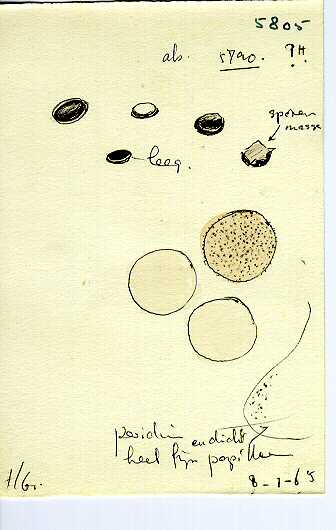 5805
als. 5790. ?H
sporen
masse
leeg.
peridiu
heel fijn papillen
H/Gr. 8-1-65